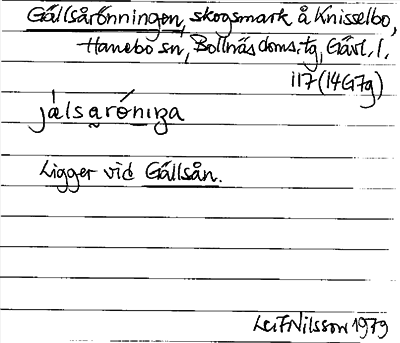 Gällsårönningen, skogsmark å Knisselbo,
Hanebo sn, Bollnäs doms.tg, Gävl. l.
117 (14G7g)
jälsaróniŋa
Ligger vid Gällsån.
Leif Nilsson 1979